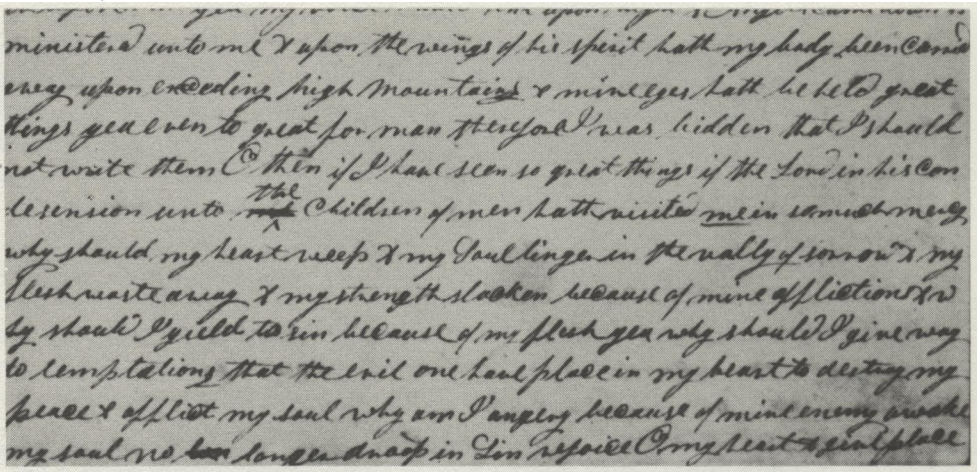 ministerd unto me & upon the wings of his spirit hath my body been carrid
away upon exceding high mountains & mine eyes hath beheld great
things yea even to great for man therefore I was bidden that I should
not write them O then if I have seen so great things if the Lord in his con
desension unto the Children of men hath visited me in so much mercy
why should my heart weep & my Soul linger in the vally of sorrow & my
flesh waste away & my strength slacken because of mine afflictions & w
hy should I yield to sin because of my flesh yea why should I give way
to temptations that the evil one have place in my heart to destroy my
peace & afflict my soul why am I angery because of mine enemy awake
my soul no longer droop in Sin rejoice O my heart & give place